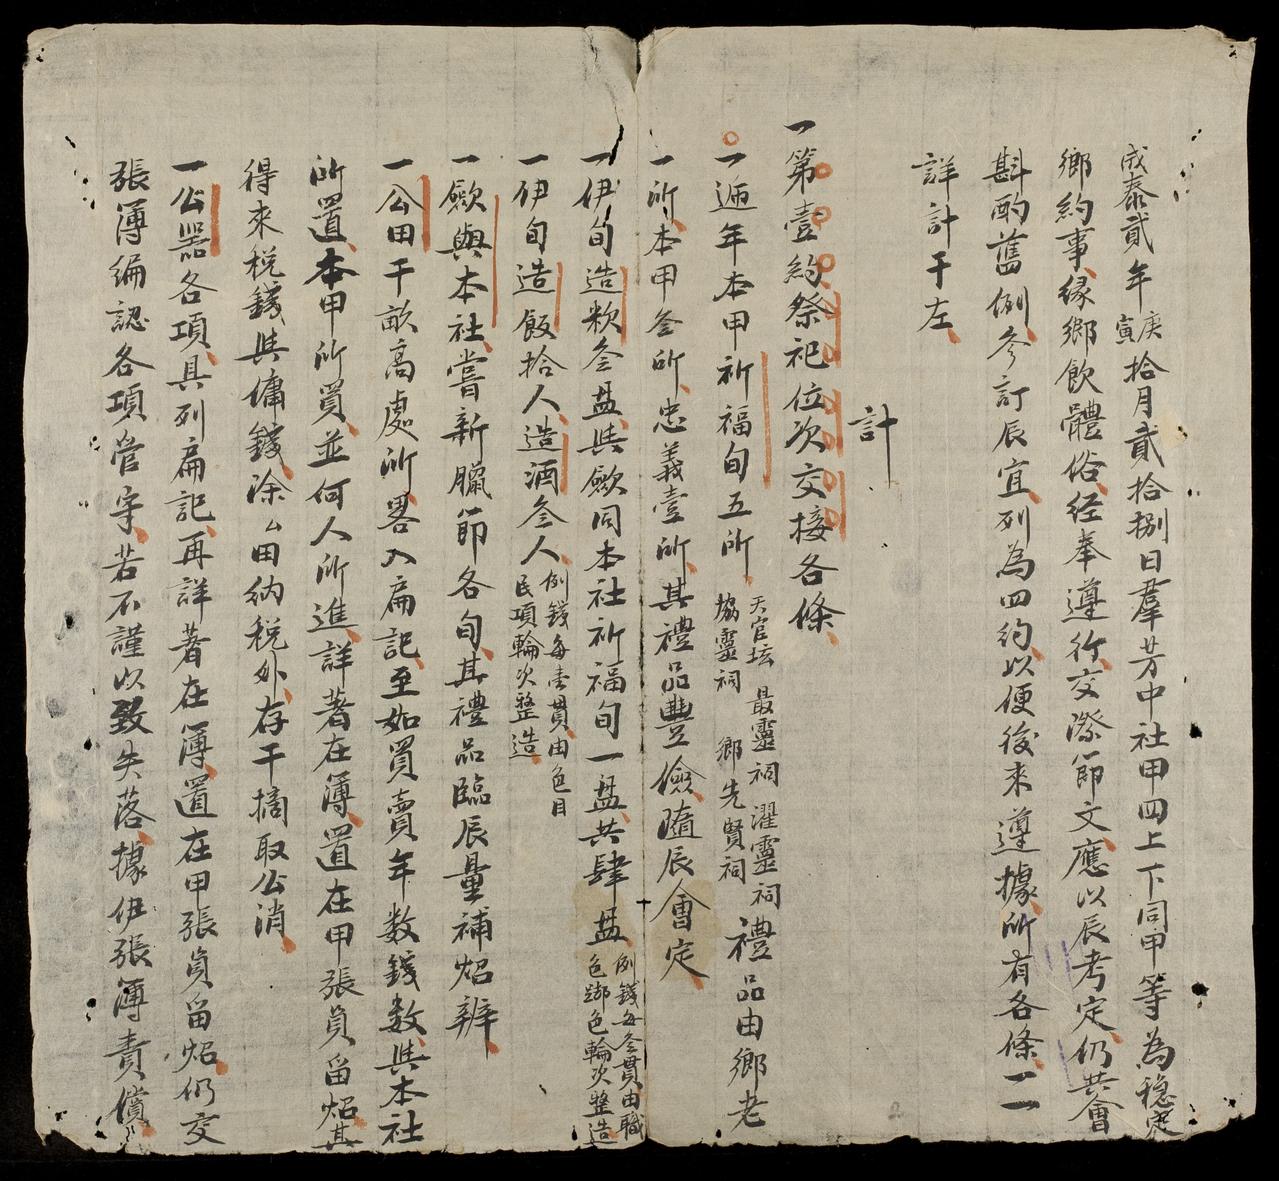 成泰貳年庚寅拾月貳拾捌日羣芳中社甲四上下同甲等為穩定
鄉約事緣鄉飲體俗经奉遵行交際節文應以辰考定仍共會
斟酌舊例参訂辰宜列為四約以便後來遵據所有各條一一
詳計于左
計
一第壹約祭祀位次交接各條
一遞年本甲祈福旬五所天官坛最靈祠濯靈祠協靈祠鄉先賢祠禮品由鄉老
一所本甲叁所忠義壹所其禮品豐儉隨辰會定
一伊旬造粢叁盘其歛同本社祈福旬一盘共肆盘例錢每叁貫由職色鄉色輪次整造
一伊旬造飯拾人造酒叁人例錢每壹貫由色目民項輪次整造
一歛與本社嘗新臘節各旬其禮品臨辰量補炤辦
一公田干畝高處所畧入扁記至如買賣年数錢数其本社
所置本甲所買並何人所進詳著在簿置在甲張員留炤其
得來税錢其傭錢除公田納税外存干摘取公消
一公器各項具列扁記再詳著在簿置在甲張員留炤仍交
張簿編認各項管守若不謹以致失落據伊張簿責償